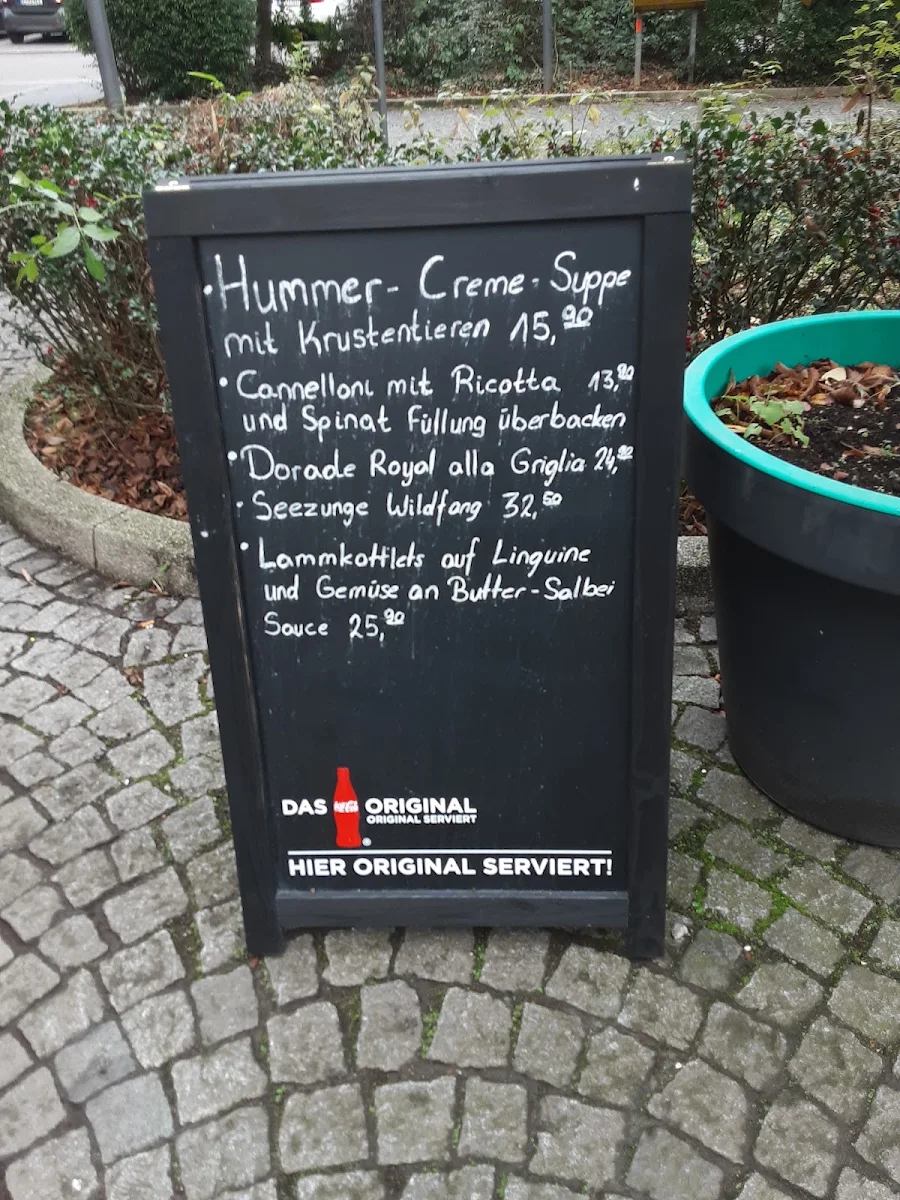 • Hummer- Creme-Suppe
mit Krustentieren 15,90
• Cannelloni mit Ricotta 13,90
und Spinat Füllung überbacken
• Dorade Royal alla Griglia 24,90
• Seezunge Wildfang 32,50
• Lammkottlets auf Linguine
und Gemüse an Butter-Salbei
Sauce 25,90
DAS Coca-Cola ORIGINAL
ORIGINAL SERVIERT
HIER ORIGINAL SERVIERT!